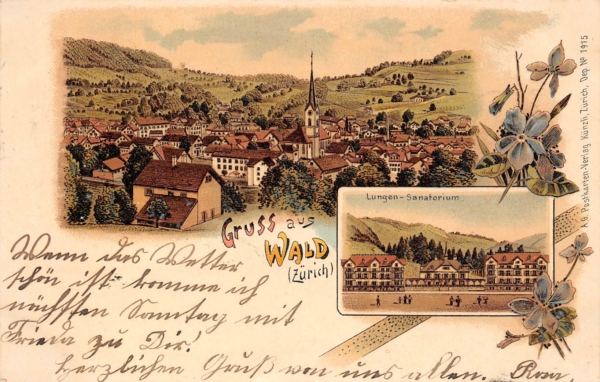 Gruss aus
WALD
(Zürich)
Lungen-Sanatorium
A.G. Postkarten-Verlag Künzli, Zürich, Dep. No 1915
Wenn das Wetter
schön ist komme ich
nächsten Sonntag mit
Frieda zu Dir!
Herzlichen Gruß von uns allen. Rosa